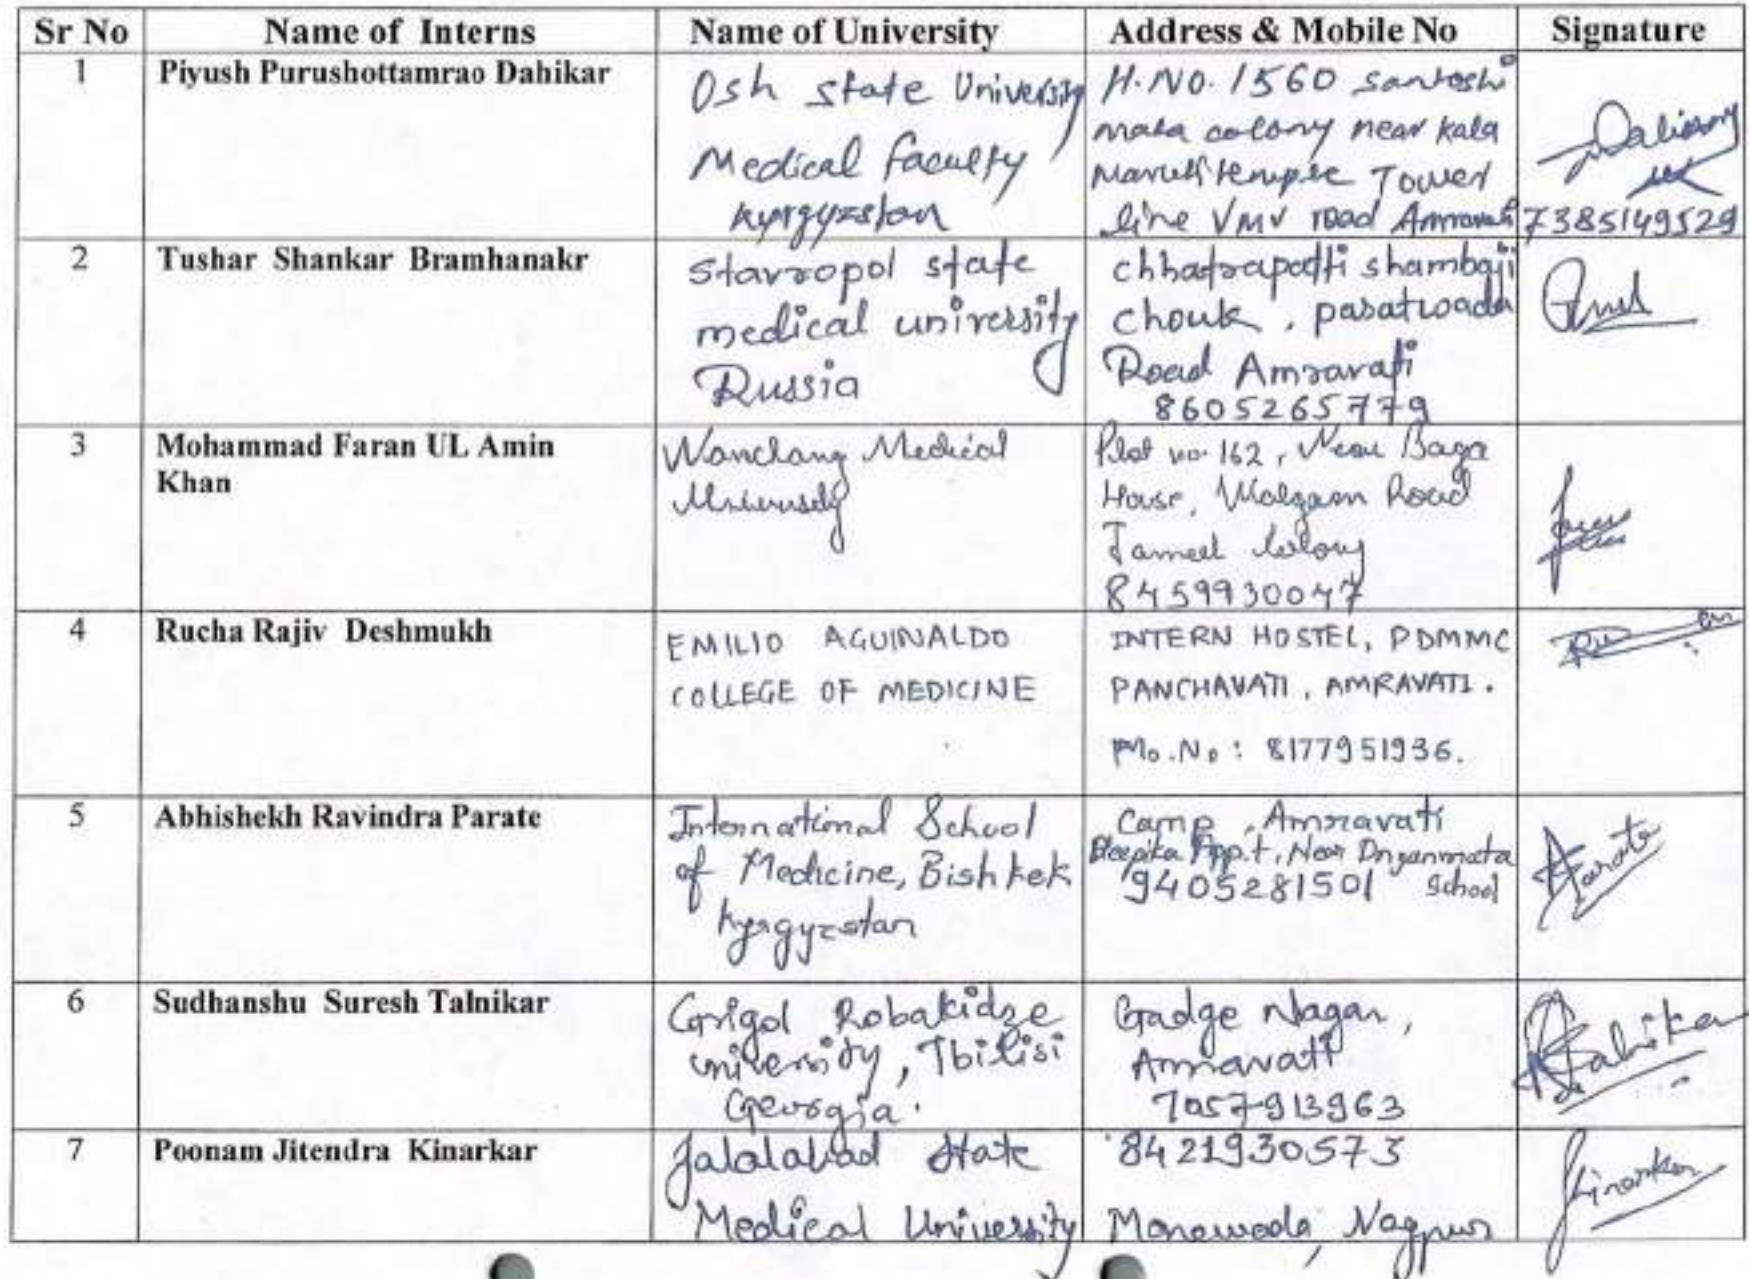 Sr No Name of Interns Name of University Address & Mobile No Signature
1 Piyush Purushottamrao Dahikar
Osh state University
Medical faculty
kyrgyzstan
H.NO. 1560 santoshi
mata colony near kala
Maruti temple Tower
line VMV road Amravati
7385149529
2 Tushar Shankar Bramhanakr
Stavropol state
medical university
Russia
chhatrapatti shambaji
chouk, paratwada
Road Amravati
8605265779
3 Mohammad Faran UL Amin
Khan
Medical
University
Plot no. 162, Near
House, Walgaon Road
Jameel Colony
8459930047
4 Rucha Rajiv Deshmukh
EMILIO AGUINALDO
COLLEGE OF MEDICINE
INTERN HOSTEL, PDMMC
PANCHAVATI, AMRAVATI.
Mo.No: 8177951936.
5 Abhishekh Ravindra Parate
International School
of Medicine, Bishkek
kyrgyzstan
Camp, Amravati
Deepika App.t, Near Dnyanmata
9405281501 School
Parate
6 Sudhanshu Suresh Talnikar
Grigol Robakidze
university, Tbilisi
Georgia.
Gadge Nagar,
Amravati
7057913963
7 Poonam Jitendra Kinarkar
Jalalabad State
Medical University
8421930573
Manewada, Nagpur
Kinarkar